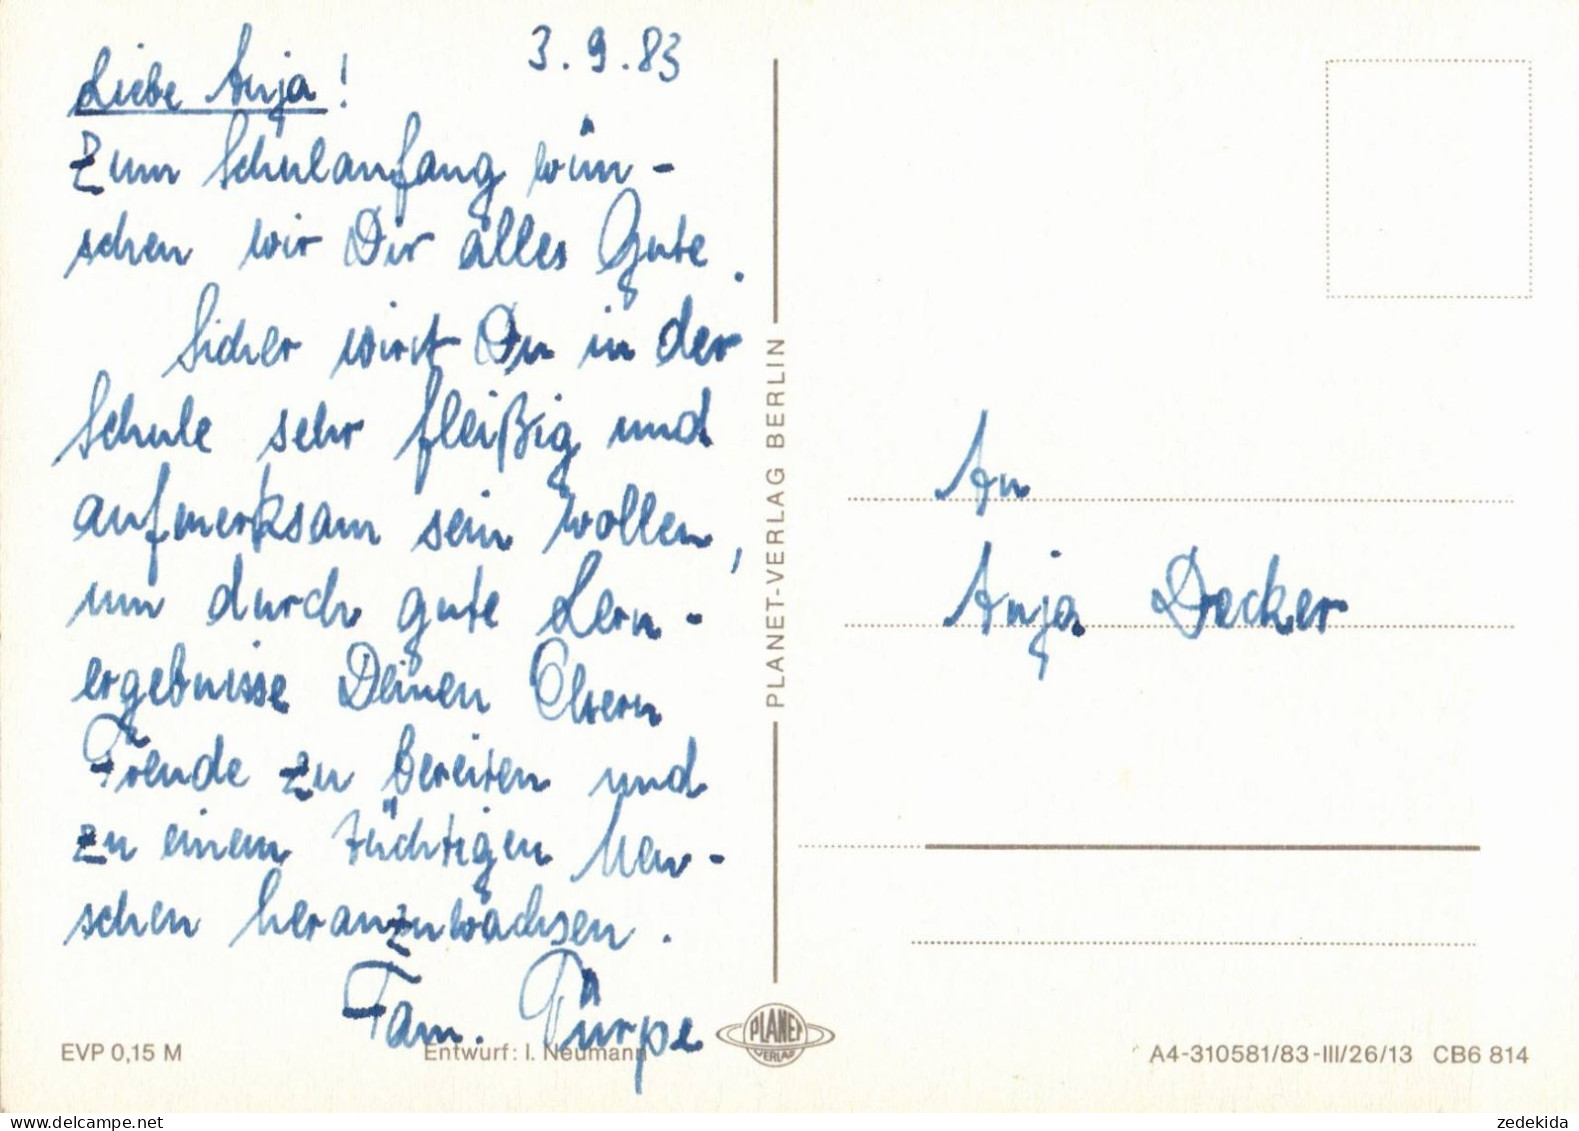 3.9.83
Liebe Anja!
Zum Schulanfang wün-
schen wir Dir alles Gute.
Sicher wirst Du in der
Schule sehr fleißig und
aufmerksam sein wollen,
um durch gute Lern-
ergebnisse Deinen Eltern
Freude zu bereiten und
zu einem tüchtigen Men-
schen heranzuwachsen.
Fam. Türpe
EVP 0,15 M
Entwurf: I. Neumann
PLANET-VERLAG BERLIN
PLANET
VERLAG
An
Anja Decker
A4-310581/83-III/26/13 CB6 814
zedekida
delcampe.net